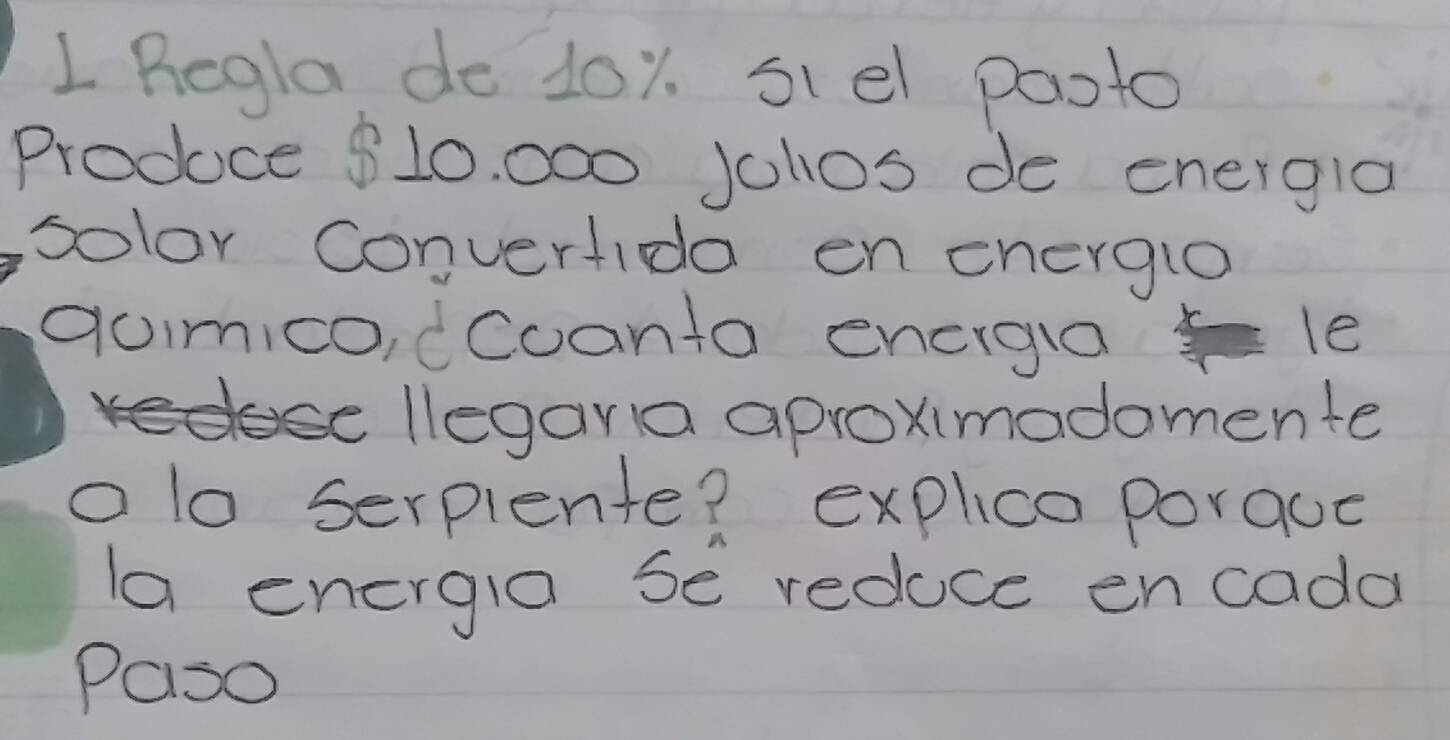 1 Regla de 10% si el pasto
Produce $10.000 julios de energia
solar convertida en energia
quimica, ¿cuanta energia le
reduce llegaria aproximadamente
a la serpiente? explica porque
la energia se reduce en cada
Paso